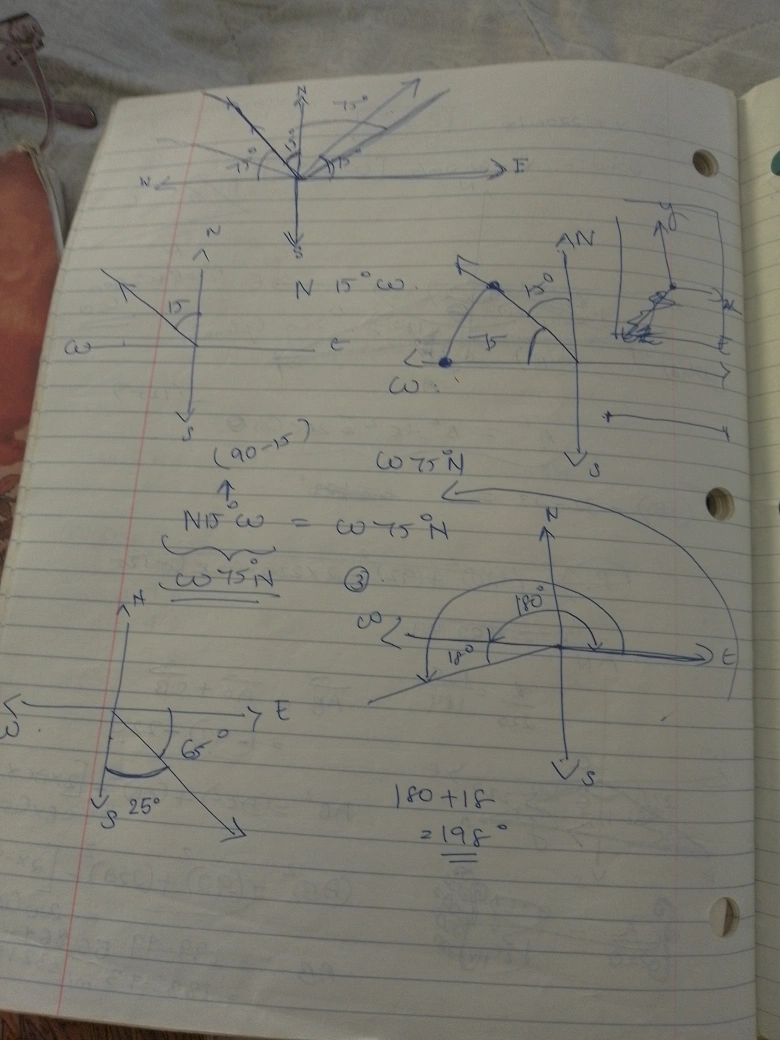 N
75°
15°
75°
15°
W
E
S
N
N 15° W.
15
W
E
S
N
15°
75
W
S
y
x
(90-15)
W 75° N
N15°W = W 75° N
W 75° N
③
N
W
E
65°
S 25°
N
180°
W
18°
E
S
180+18
= 198°